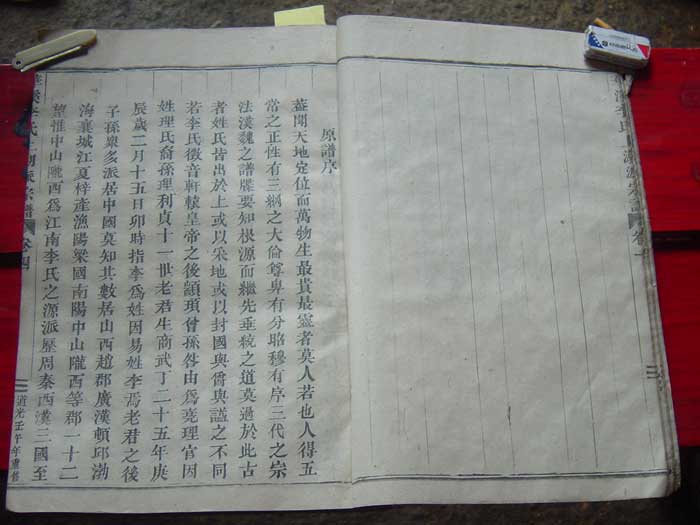 原譜序
蓋聞天地定位而萬物生最貴最靈者莫人若也人得五
常之正性有三綱之大倫尊卑有分昭穆有序三代之宗
法漢魏之譜牒要知根源而繼先垂統之道莫過於此古
者姓氏皆出於上或以采地或以封國與爵與謚之不同
若李氏徵音軒轅皇帝之後顓頊曾孫咎由為堯理官因
姓理氏裔孫理利貞十一世老君生商武丁二十五年庚
辰歲二月十五日卯時指李為姓因易姓李焉老君之後
子孫衆多派居中國莫知其數居山西趙郡廣漢頓邱渤
海襄城江夏梓產漁陽梁國南陽中山隴西等郡一十二
望惟中山隴西為江南李氏之源派歷周秦西漢三國至
李氏 宗譜 卷四
道光壬午年重修
李氏 源宗譜 卷